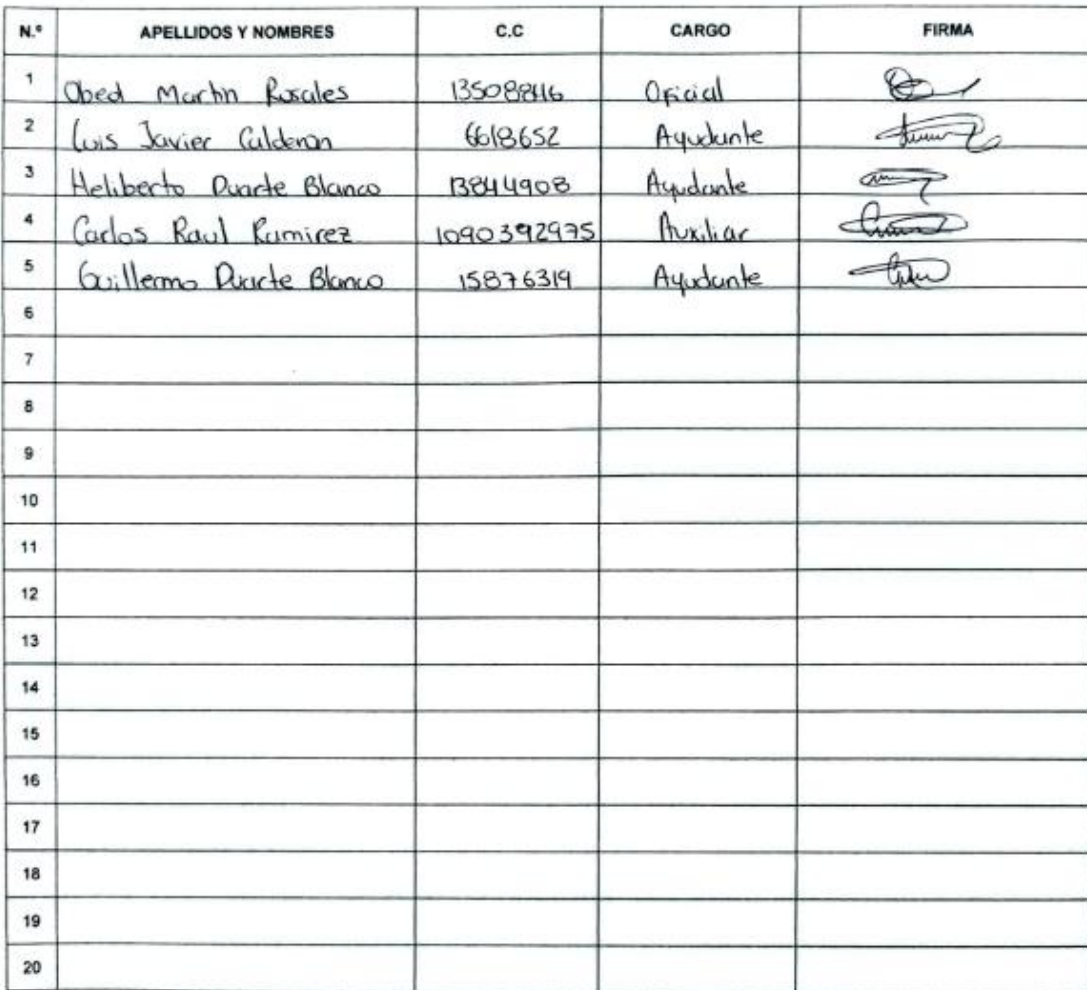 N.º APELLIDOS Y NOMBRES C.C CARGO FIRMA
1 Obed Martin Rosales 13508846 Oficial
2 Luis Javier Calderon 6618652 Ayudante
3 Heliberto Duarte Blanco 13844908 Ayudante
4 Carlos Raul Ramirez 1090392975 Auxiliar
5 Guillermo Duarte Blanco 15876319 Ayudante
6
7
8
9
10
11
12
13
14
15
16
17
18
19
20